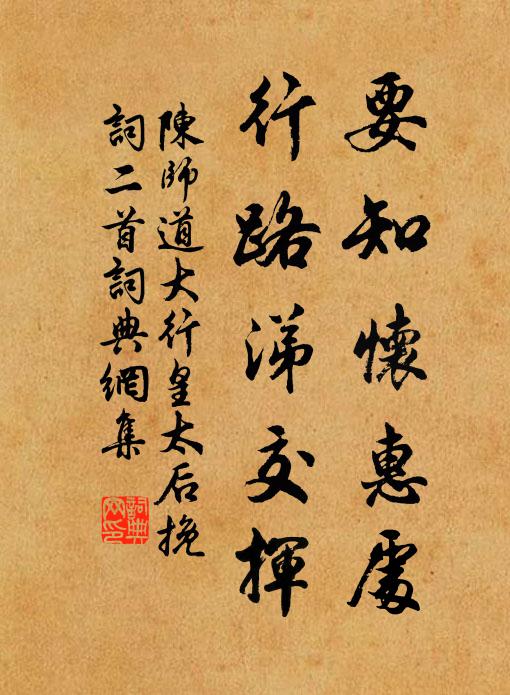 要知懷惠處
行路涕交揮
陳師道大行皇太后挽
詞二首詞典網集
詞典
网印